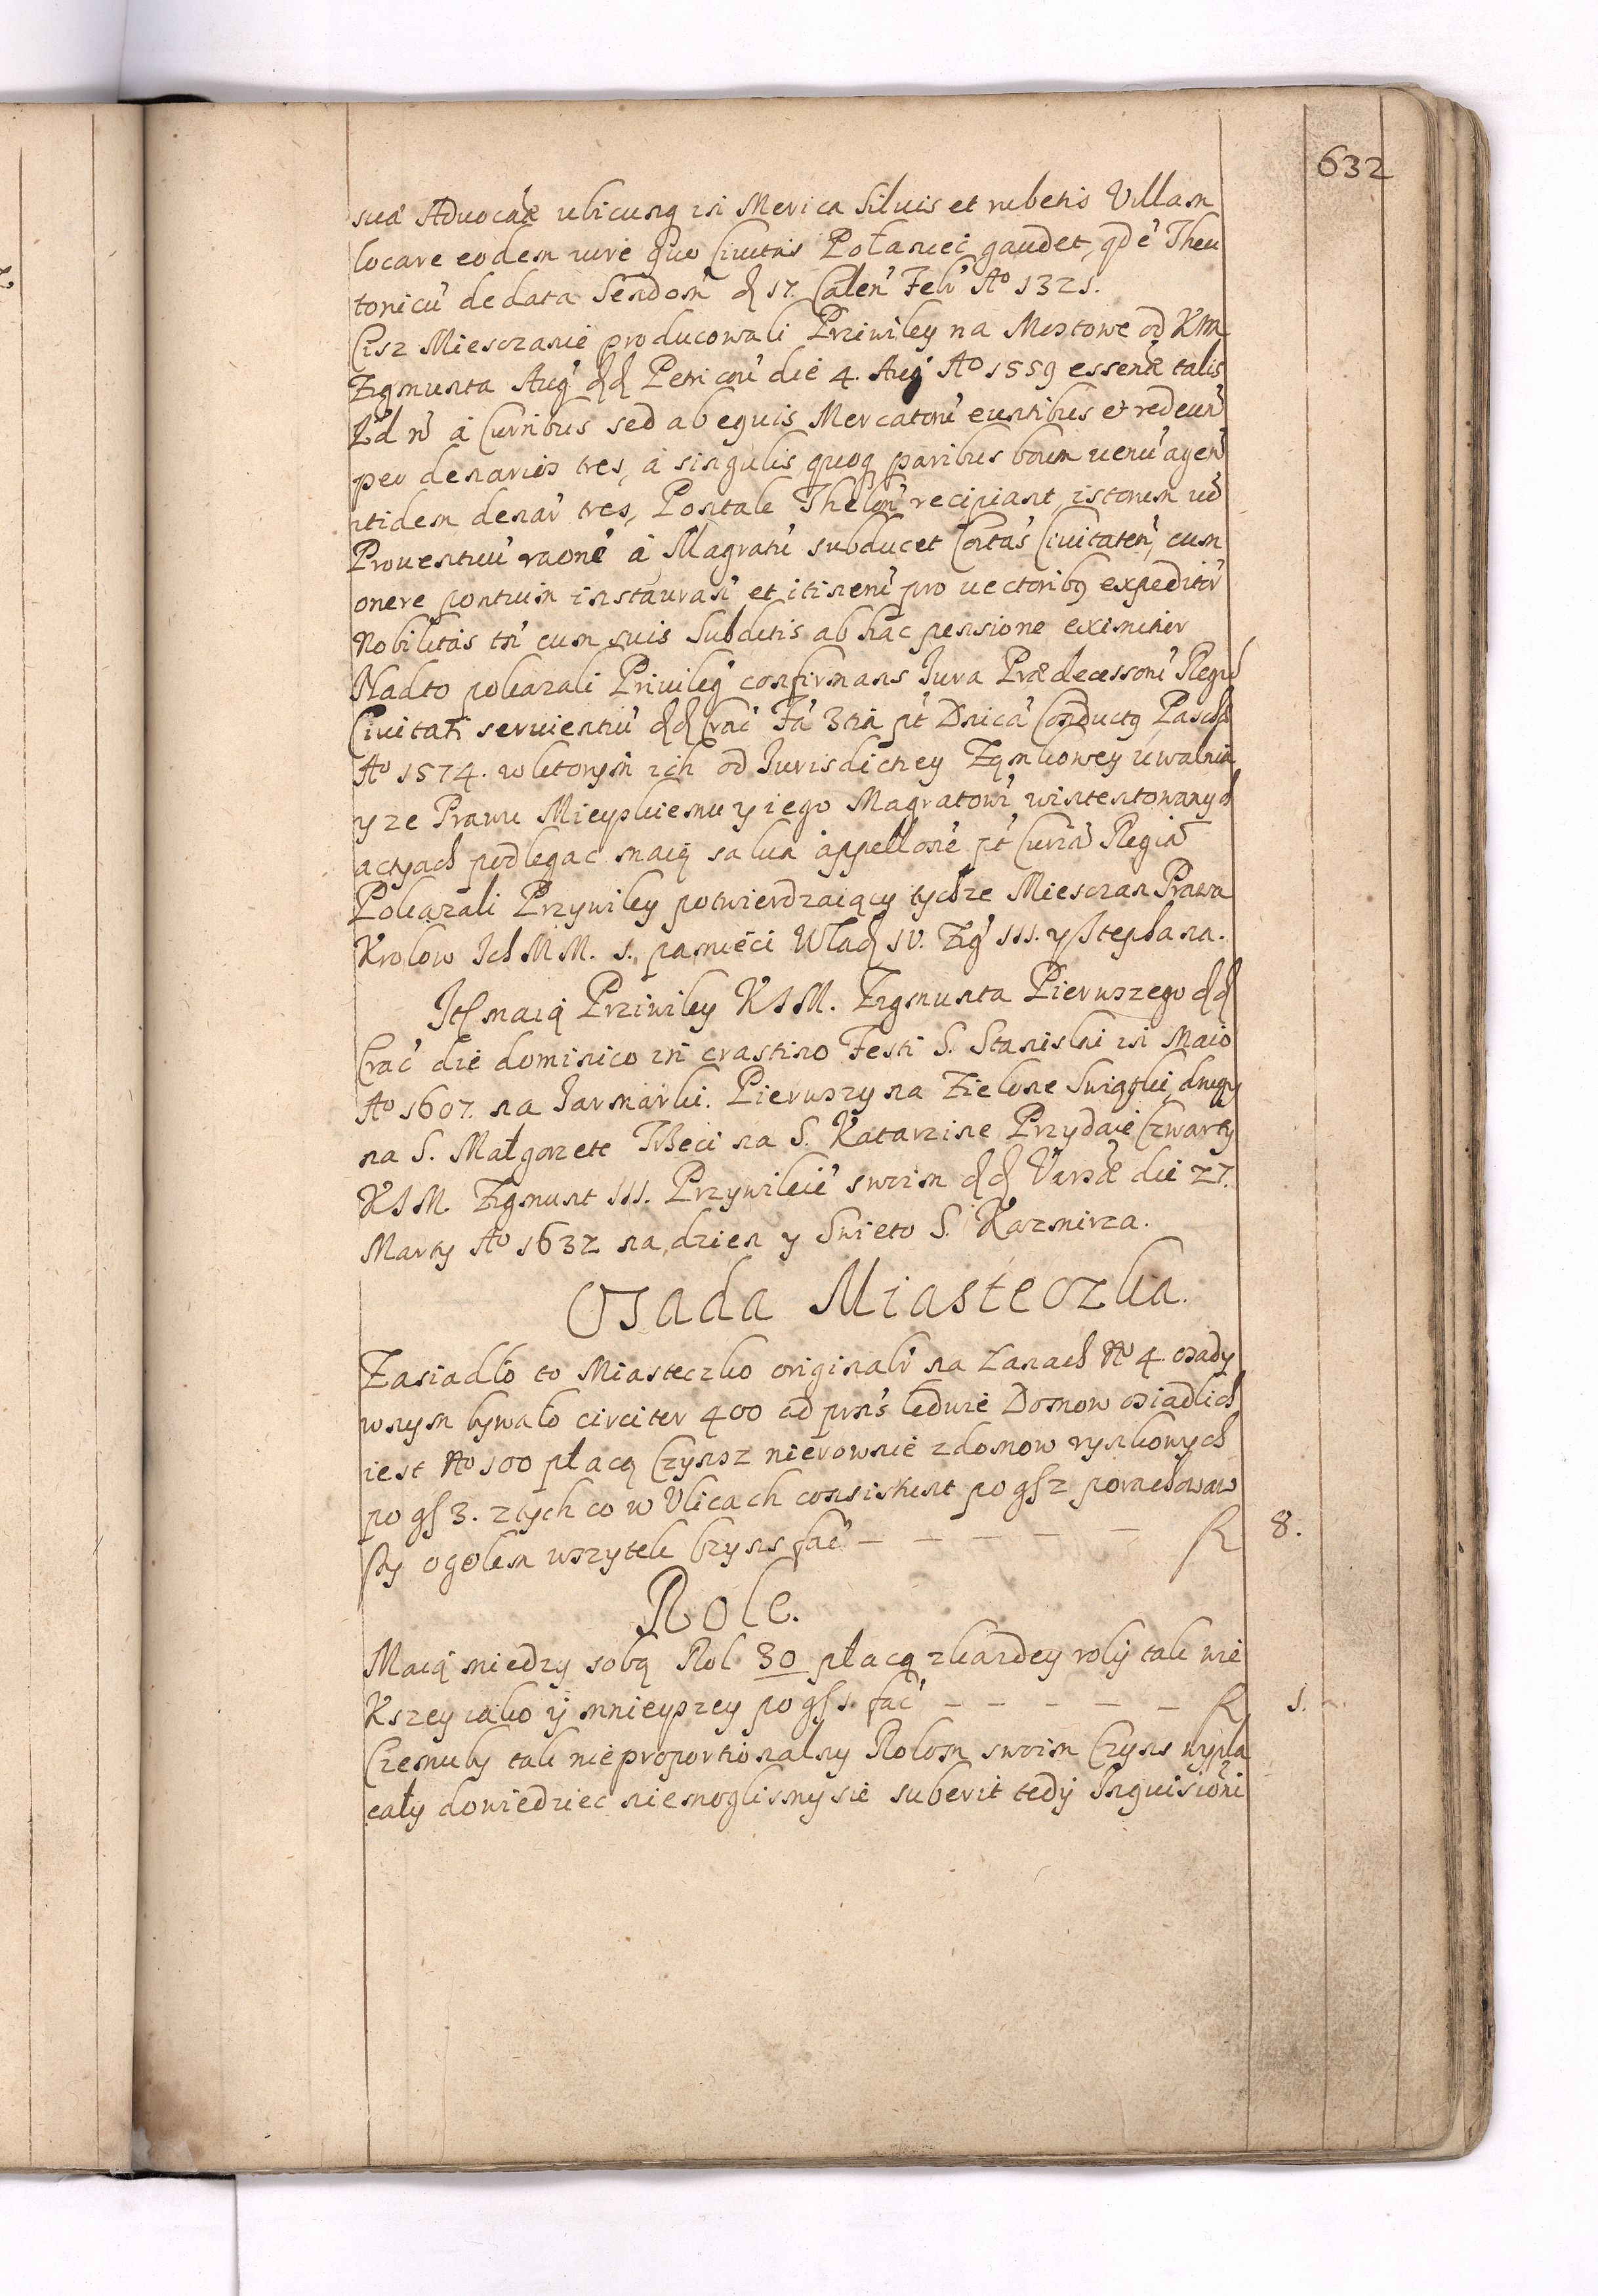 632
sua Advocatiae ubicunq in Merica Siluis et rubetis Villam
locare eodem iure quo Ciuitas Połaniec gaudet, qd e Theu
tonicu de data Sendom d 17. Calen Feb Aº 1321.
Cisz Miesczanie producowali Prziwiley na Mostowe od KIM
Zigmunta Aug dd Petricou die 4. Aug Aº 1559 essentiae talis
Ld n a Curribus sed ab equis Mercatoru euntibus et redeun
per denarios tres, a singulis quoq paribus boum uenu agen
itidem denar tres, Pontale Thelon recipiant, istorum ue
Prouentuu raone a Magratu subducet Contas Ciuitaten, cum
onere pontium instauran et itineru pro uectoribq expeditor
Nobilitas tn cum suis Subditis ab hac pensione eximitur
Nadto pokazali Priuileg confirmans Iura Praedecessoru Regu
Ciuitati seruientiu dd Crac Fa 3tia pt Dnica Conductq Pasch
Aº 1574. w ktorym ich od Iurisdictiey Zamkowey uwalnia
y ze Prawu Mieyskiemu y iego Magratowi wintentowanych
actyach podlegac maią salua appellone pt Curia Regia
Pokazali Przywiley potwierdzaiący tychze Miesczan Prawa
Krolow Ich MM. s. pamieci Wład IV. Zig III. y Stephana.
Itt maią Prziwiley KIM. Zigmunta Pierwszego dd
Crac die dominico in crastino Festi S. Stanislai in Maio
Aº 1607. na Iarmarki. Pierwszy na Zielone Swiątki, drugy
na S. Małgorzete Trzeci na S. Katarzine Przydaie Czwarty
KIM. Zigmunt III. Przywileie swoim dd Varsae die 27.
Marty Aº 1632 na dzien y Swieto S. Kazmirza.
Osada Miasteczka.
Zasiadło to Miasteczko originalr na Łanach Nº 4. osady
w nym bywało circiter 400 ad prns ledwie Domow osiadlich
iest Nº 100 płacą Czynsz nierownie z domow rynkowych
po gſ 3. z tych co w Vlicach consistunt po gſ 2 porachowaw
szy ogolem wszytek Czyns fac – – – – – f 8.
Role.
Maią miedzy sobą Rol 30 płacą z kazdey roly tak wie
kszey iako y mnieyszey po gſ 1. fac – – – – – f 1.
Czemuby tak nieproportionalny Rolom swoim Czyns wypła
cały dowiedziec niemoglismy sie suberit tedy Inquisitioni